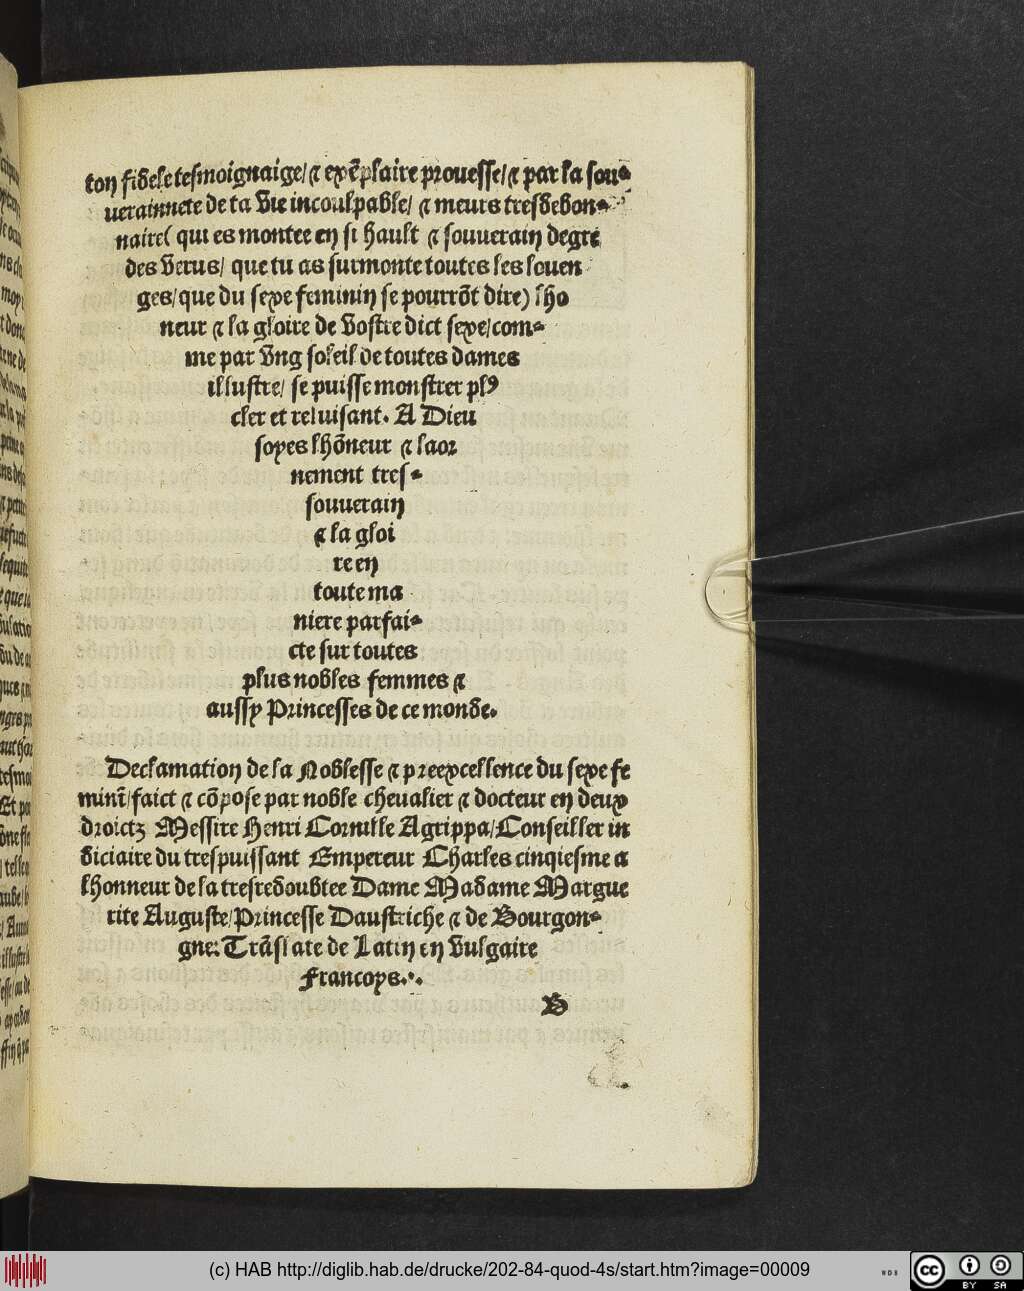 ton fidele tesmoignaige/ ⁊ exẽplaire prouesse/ ⁊ par la sou⸗
uerainnete de ta Vie incoulpable/ ⁊ meurs tresdebon⸗
naire( qui es montee en si hault ⁊ souuerain degre
des Verus/ que tu as surmonte toutes les louen
ges/ que du sexe feminin se pourrõt dire) lho
neur ⁊ la gloire de Vostre dict sexe/ com⸗
me par Vng soleil de toutes dames
illustre/ se puisse monstrer plꝰ
cler et reluisant. A Dieu
soyes lhõneur ⁊ laor
nement tres⸗
souuerain
⁊ la gloi
re en
toute ma
niere parfai⸗
cte sur toutes
plus nobles femmes ⁊
aussy Princesses de ce monde.
Declamation de la Noblesse ⁊ preexcellence du sexe fe
minĩ/ faict ⁊ cõpose par noble cheualier ⁊ docteur en deux
droictz Messire Henri Cornille Agrippa/ Conseiller in
diciaire du trespuissant Empereur Charles cinqiesme a
lhonneur de la tresredoubtee Dame Madame Margue
rite Auguste/ Princesse Daustriche ⁊ de Bourgon⸗
gne: Trãslate de Latin en Vulgaire
Francoys.·.
B
(c) HAB http://diglib.hab.de/drucke/202-84-quod-4s/start.htm?image=00009
WDB
cc
BY SA